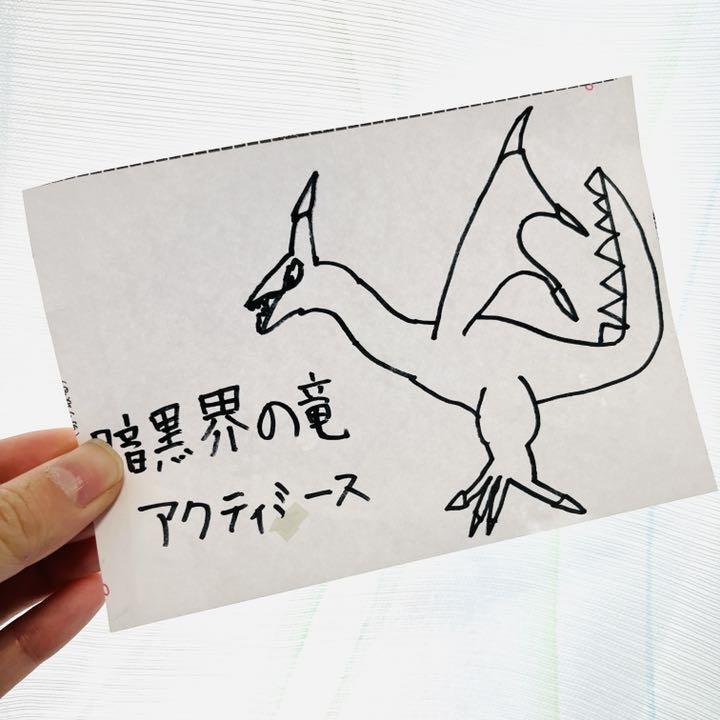 暗黒界の竜
アクティブース